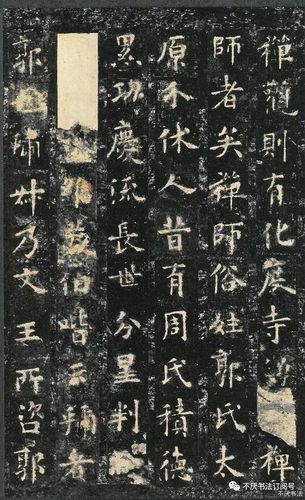 禪觀則有化度寺僧禪
師者矣禪師俗姓郭氏太
原介休人昔有周氏積德
累功慶流長世分星判
維蔡伯喈云虢者
郭虢叔乃文王所咨郭
不厌书法订阅号
不厌书法